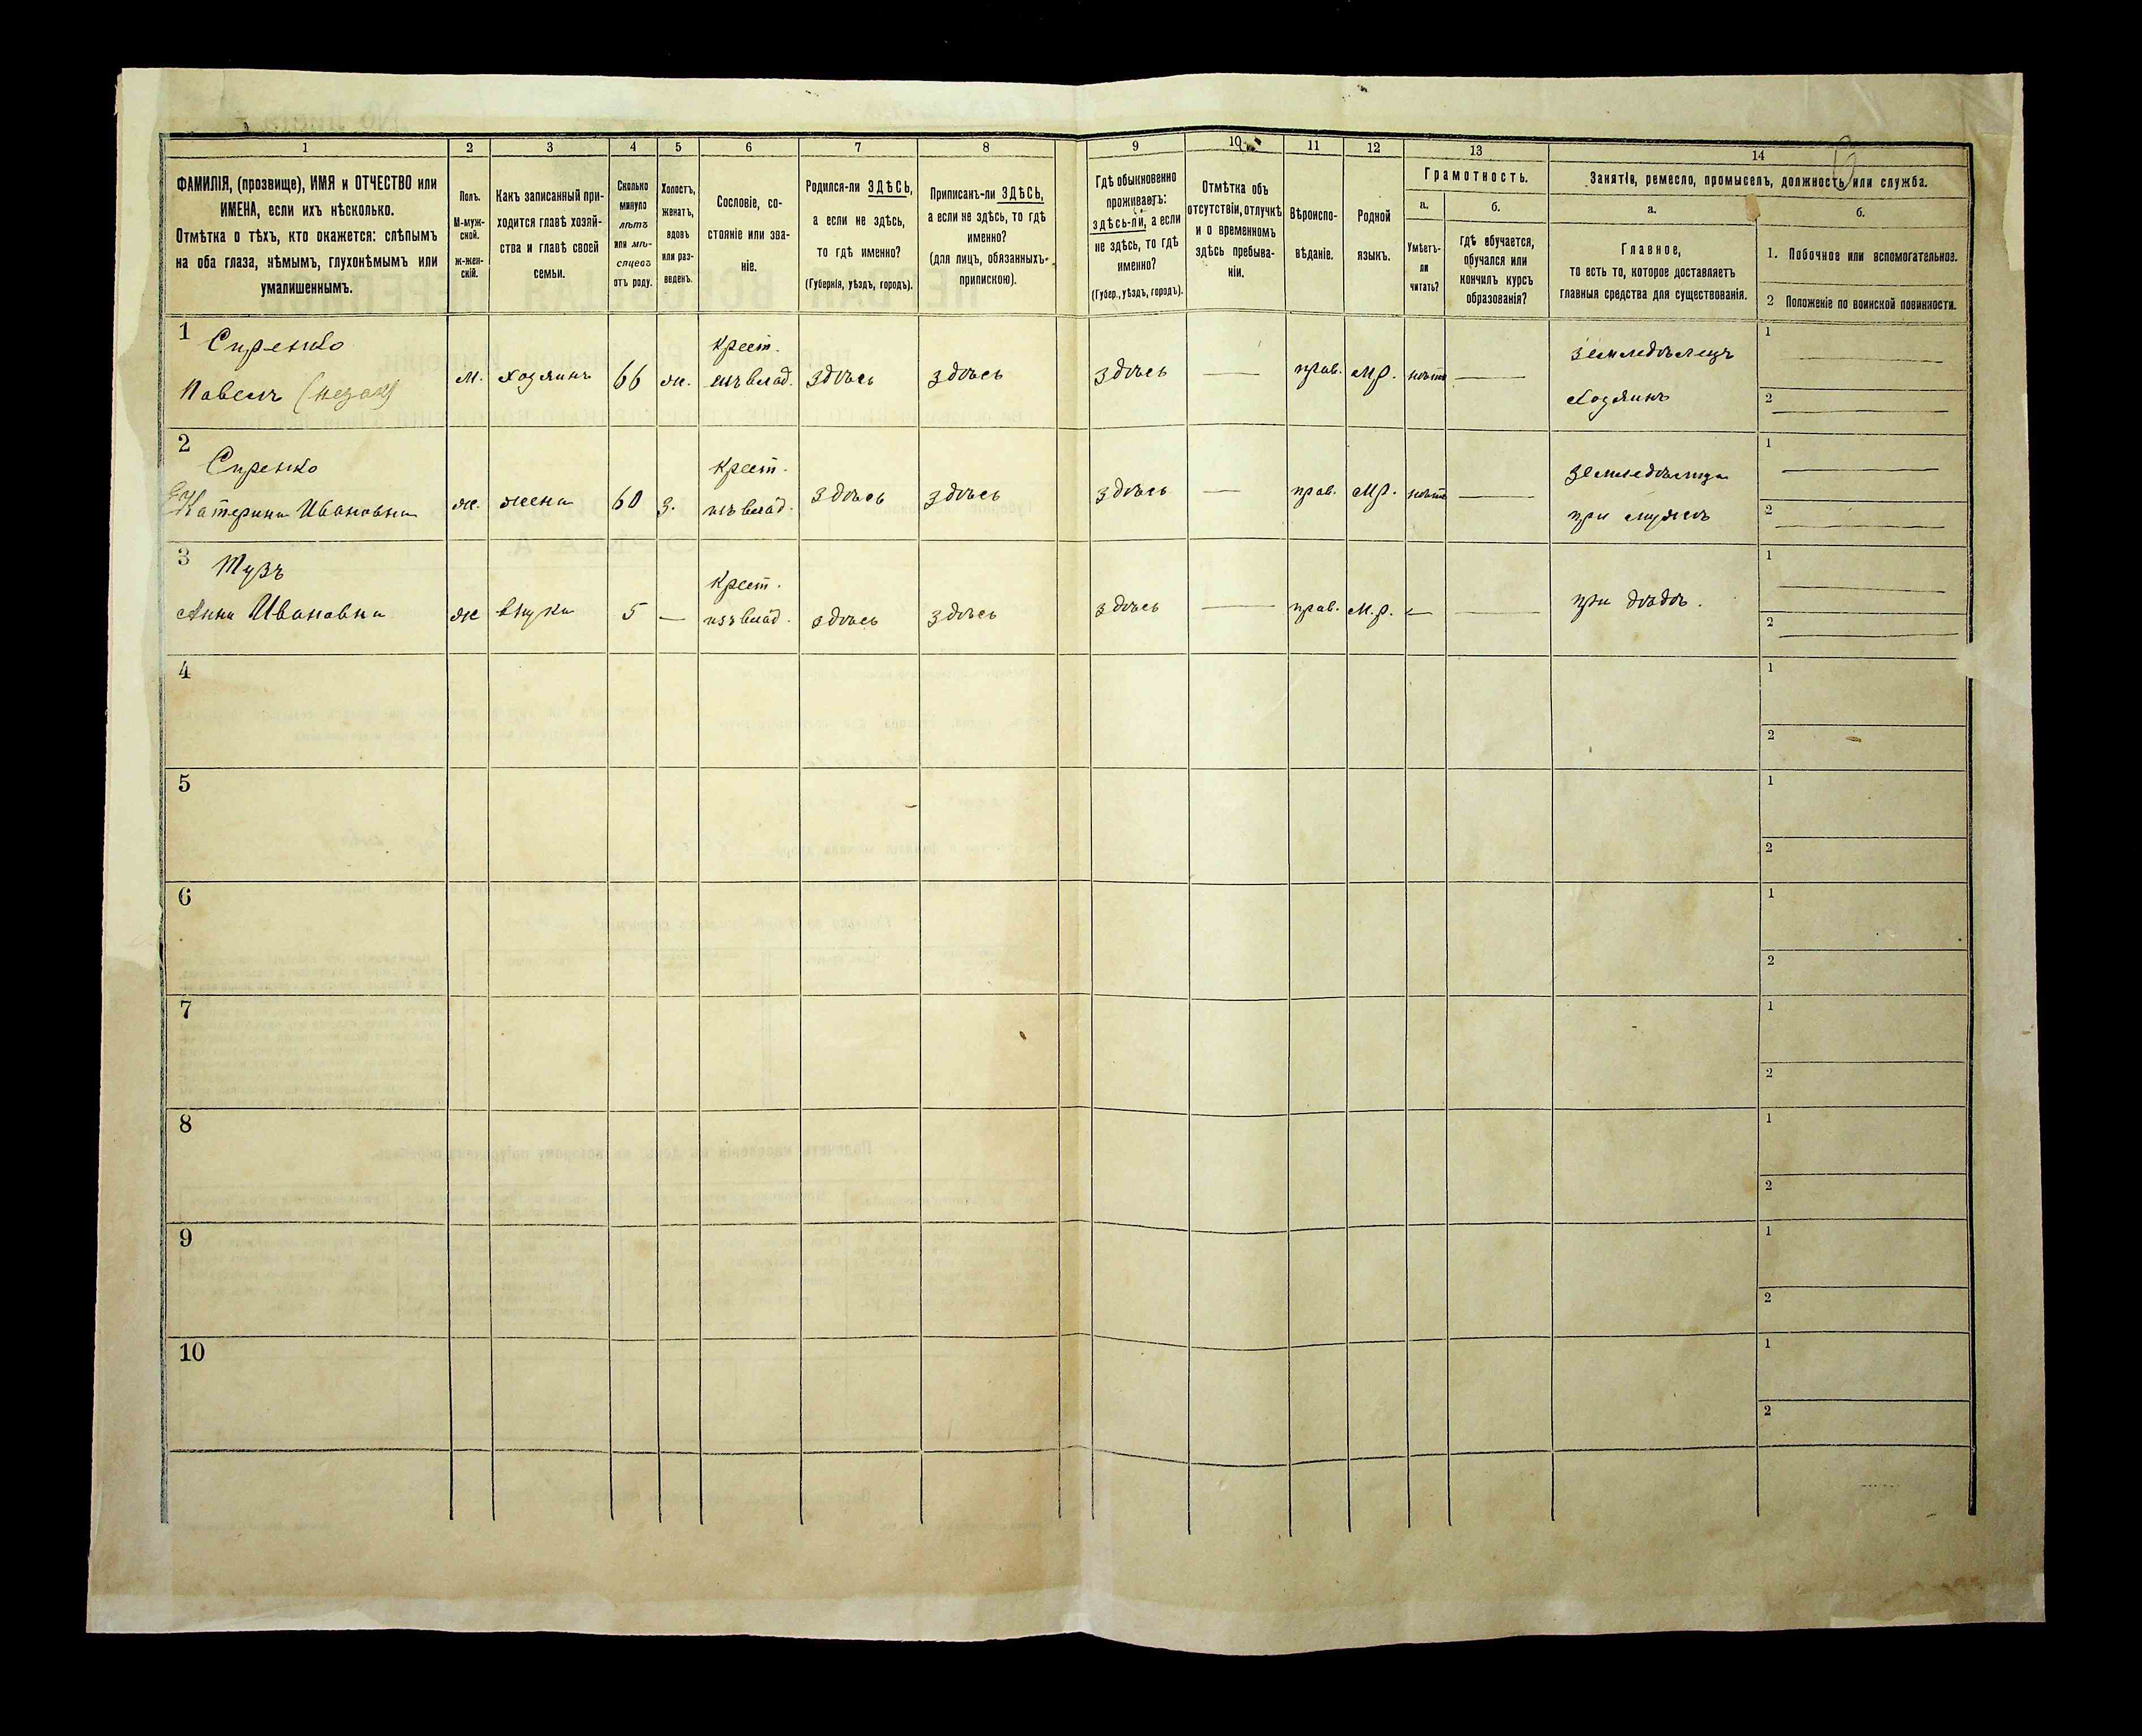 1 2 3 4 5 6 7 8 9 10 11 12 13 14
ФАМИЛІЯ, (прозвище), ИМЯ и ОТЧЕСТВО или
ИМЕНА, если ихъ нѣсколько.
Отмѣтка о тѣхъ, кто окажется: слѣпымъ
на оба глаза, нѣмымъ, глухонѣмымъ или
умалишеннымъ.
Полъ.
М-муж-
ской.
Ж-жен-
скій.
Какъ записанный при-
ходится главѣ хозяй-
ства и главѣ своей
семьи.
Сколько
минуло
лѣтъ
или мѣ-
сяцевъ
отъ роду.
Холостъ,
женатъ,
вдовъ
или раз-
веденъ.
Сословіе, со-
стояніе или зва-
ніе.
Родился-ли ЗДѢСЬ,
а если не здѣсь,
то гдѣ именно?
(Губернія, уѣздъ, городъ).
Приписанъ-ли ЗДѢСЬ,
а если не здѣсь, то гдѣ
именно?
(для лицъ, обязанныхъ
припискою).
Гдѣ обыкновенно
проживаетъ:
здѣсь-ли, а если
не здѣсь, то гдѣ
именно?
(Губер., уѣздъ, городъ).
Отмѣтка объ
отсутствіи, отлучкѣ
и о временномъ
здѣсь пребыва-
ніи.
Вѣроиспо-
вѣданіе.
Родной
языкъ.
Грамотность.
а.
Умѣетъ-
ли
читать?
б.
гдѣ обучается,
обучался или
кончилъ курсъ
образованія?
Занятіе, ремесло, промыселъ, должность или служба.
а.
Главное,
то есть то, которое доставляетъ
главныя средства для существованія.
б.
1. Побочное или вспомогательное.
2 Положеніе по воинской повинности.
1 Сиренко крест. земледѣлецъ 1
Павелъ м. хозяинъ 66 ж. изъ влад. здѣсь здѣсь здѣсь — прав. м.р. нѣтъ — хозяинъ 2
2 Сиренко крест. земледѣлица 1
Екатерина Ивановна ж. жена 60 з. изъ влад. здѣсь здѣсь здѣсь — прав. м.р. нѣтъ — при мужѣ 2
3 Тузъ крест. 1
Анна Ивановна ж внука 5 — изъ влад. здѣсь здѣсь здѣсь — прав. м.р. — — при дѣдѣ. 2
4 1
2
5 1
2
6 1
2
7 1
2
8 1
2
9 1
2
10 1
2